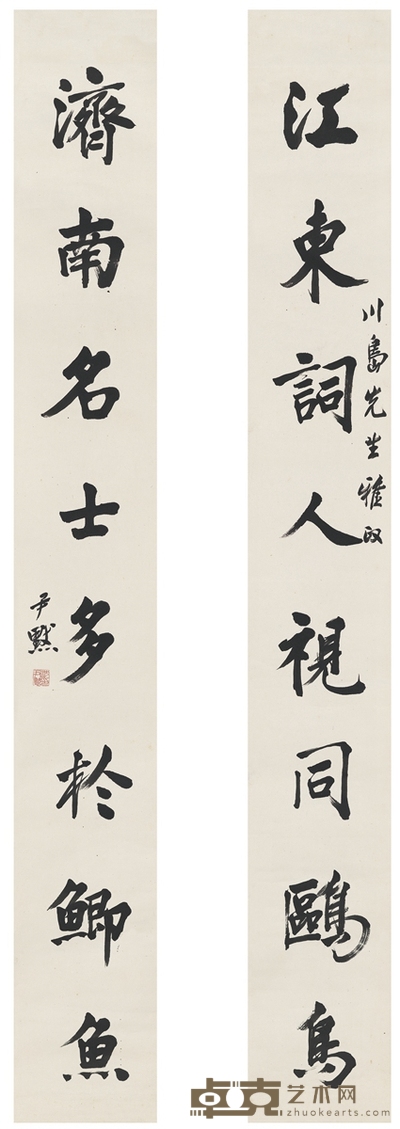 江東詞人視同鷗鳥
川島先生雅政
濟南名士多於鯽魚
尹默
卓克艺术网
zhuokearts.com